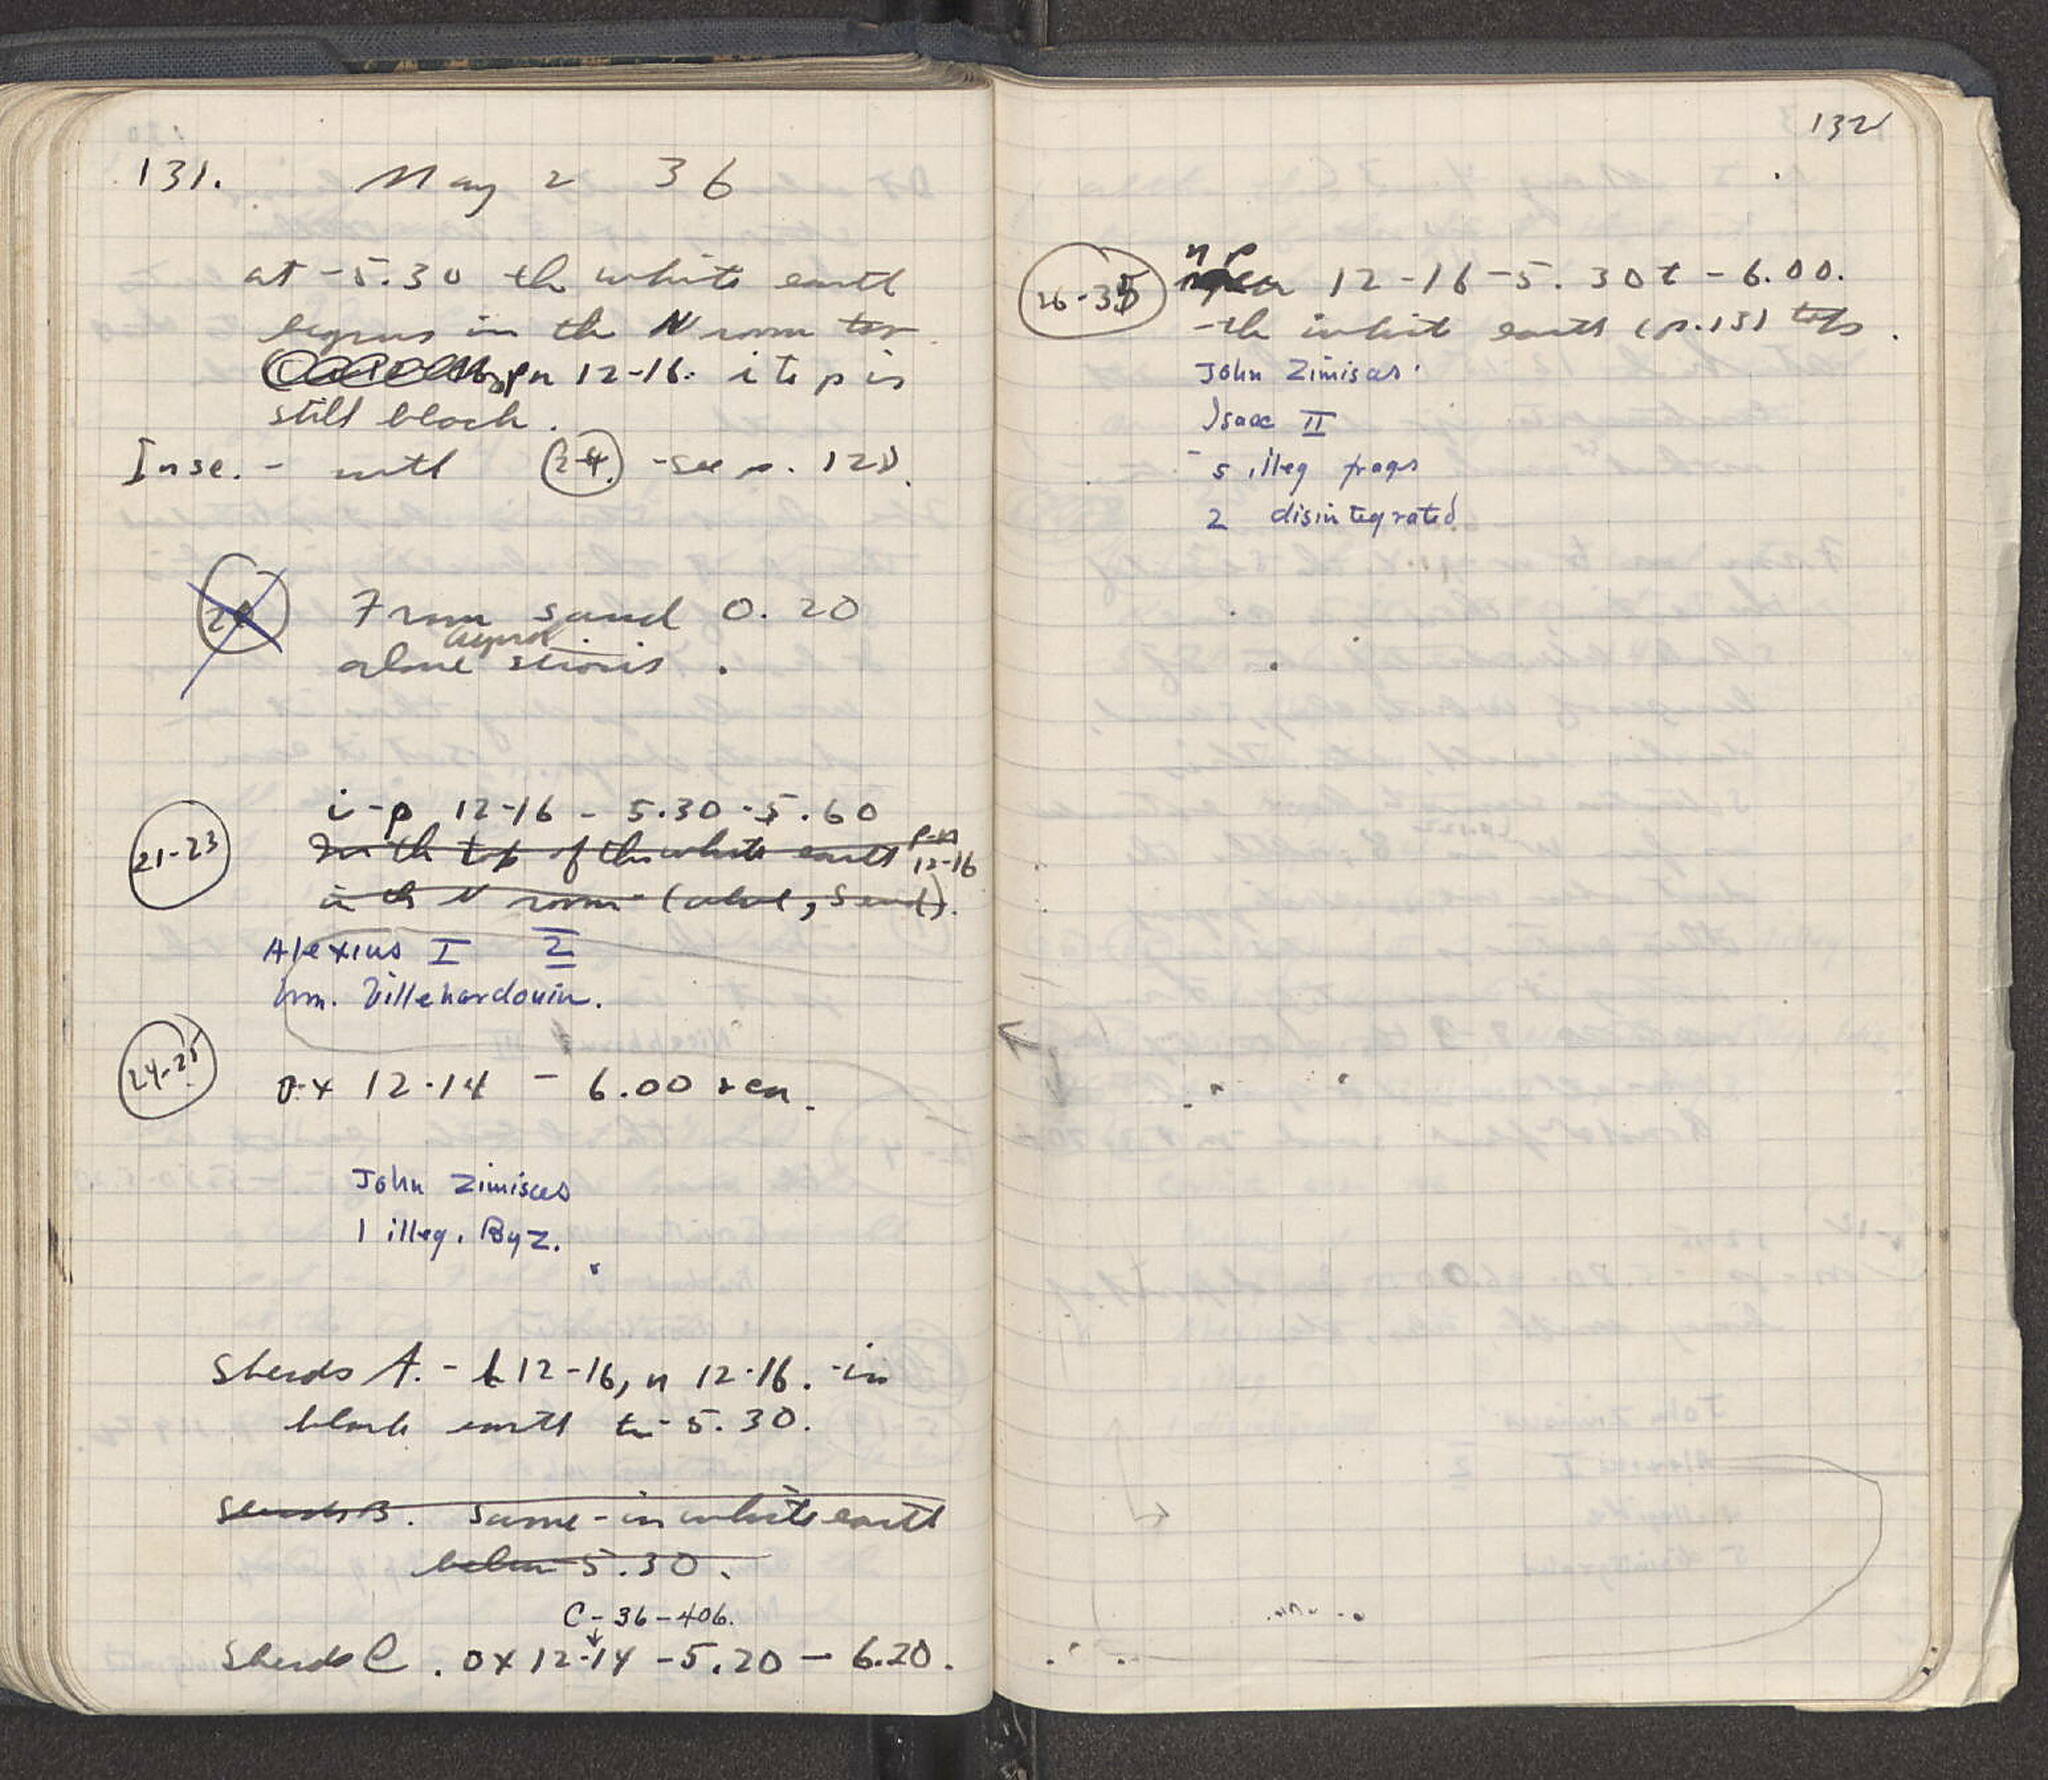 131. May 2 36
at -5.30 the white earth
begins in the N room
pn 12-16. i to p is
still black.
Inse. - with 24 - see p.
From sand 0.20
above
i-p 12-16 - 5.30-5.60
21-23
In the top of the white earth p-n
12-16
in the N room (above, Sand).
Alexius I 2
Wm. Villehardouin.
24-25
ox 12-14 - 6.00
John Zimisces
1 illeg. Byz.
Sherds A. - 12-16, n 12-16. - in
black earth to - 5.30.
Sherds B. Same - in white earth
below 5.30.
C-36-406.
Sherds C. ox 12-14 - 5.20 - 6.20.
132
26-35
n p
12-16 - 5.30 t - 6.00.
- the white earth (p. 131
John Zimisces.
Isaac II
5 illeg frags
2 disintegrated